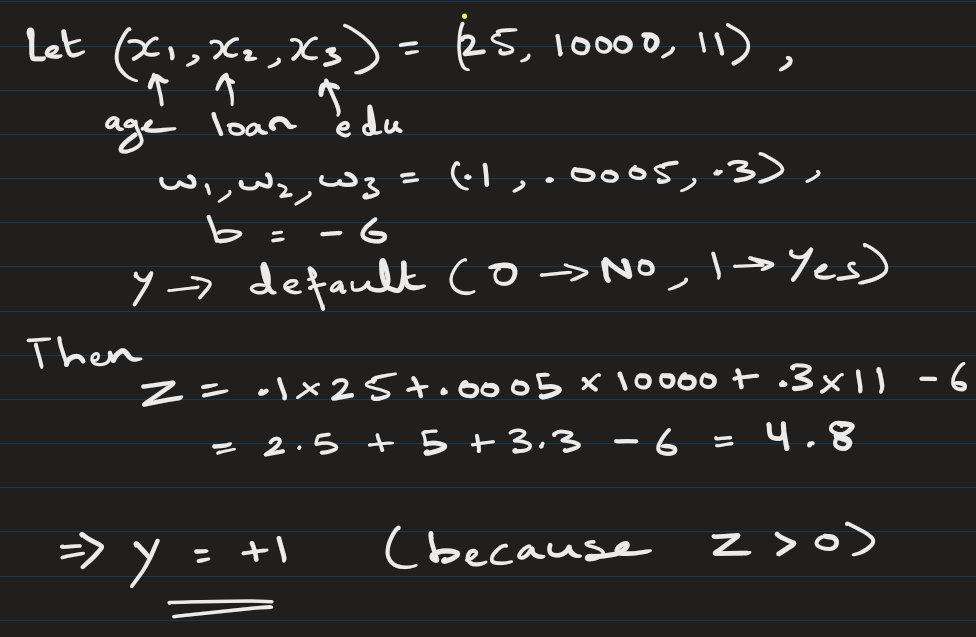 Let (x₁, x₂, x₃) = (25, 10000, 11),
↑ ↑ ↑
age loan edu
w₁, w₂, w₃ = (.1, .0005, .3),
b = -6
y → default (0 → No, 1 → Yes)
Then
z = .1 × 25 + .0005 × 10000 + .3 × 11 - 6
= 2.5 + 5 + 3.3 - 6 = 4.8
⇒ y = +1 (because z > 0)